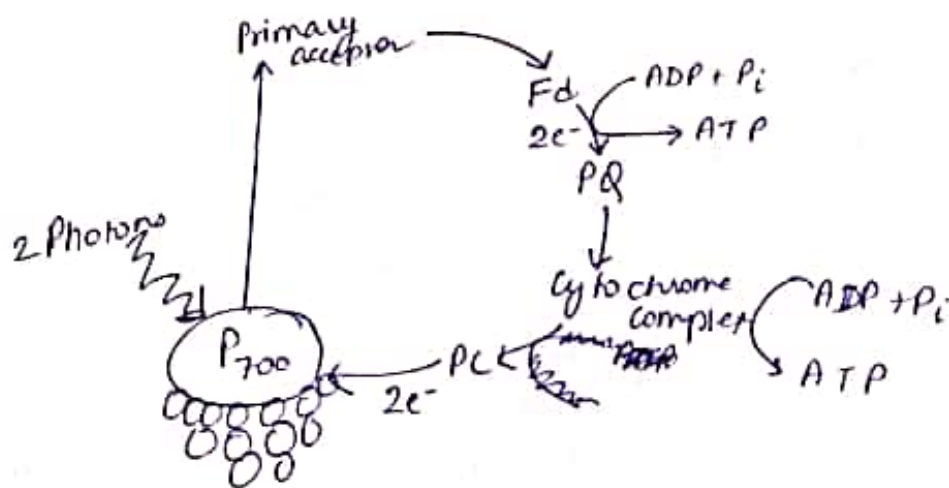 Primary
acceptor
Fd
ADP + Pi
2e-
ATP
PQ
2 Photons
Cytochrome
complex
ADP + Pi
ATP
P700
PC
2e-